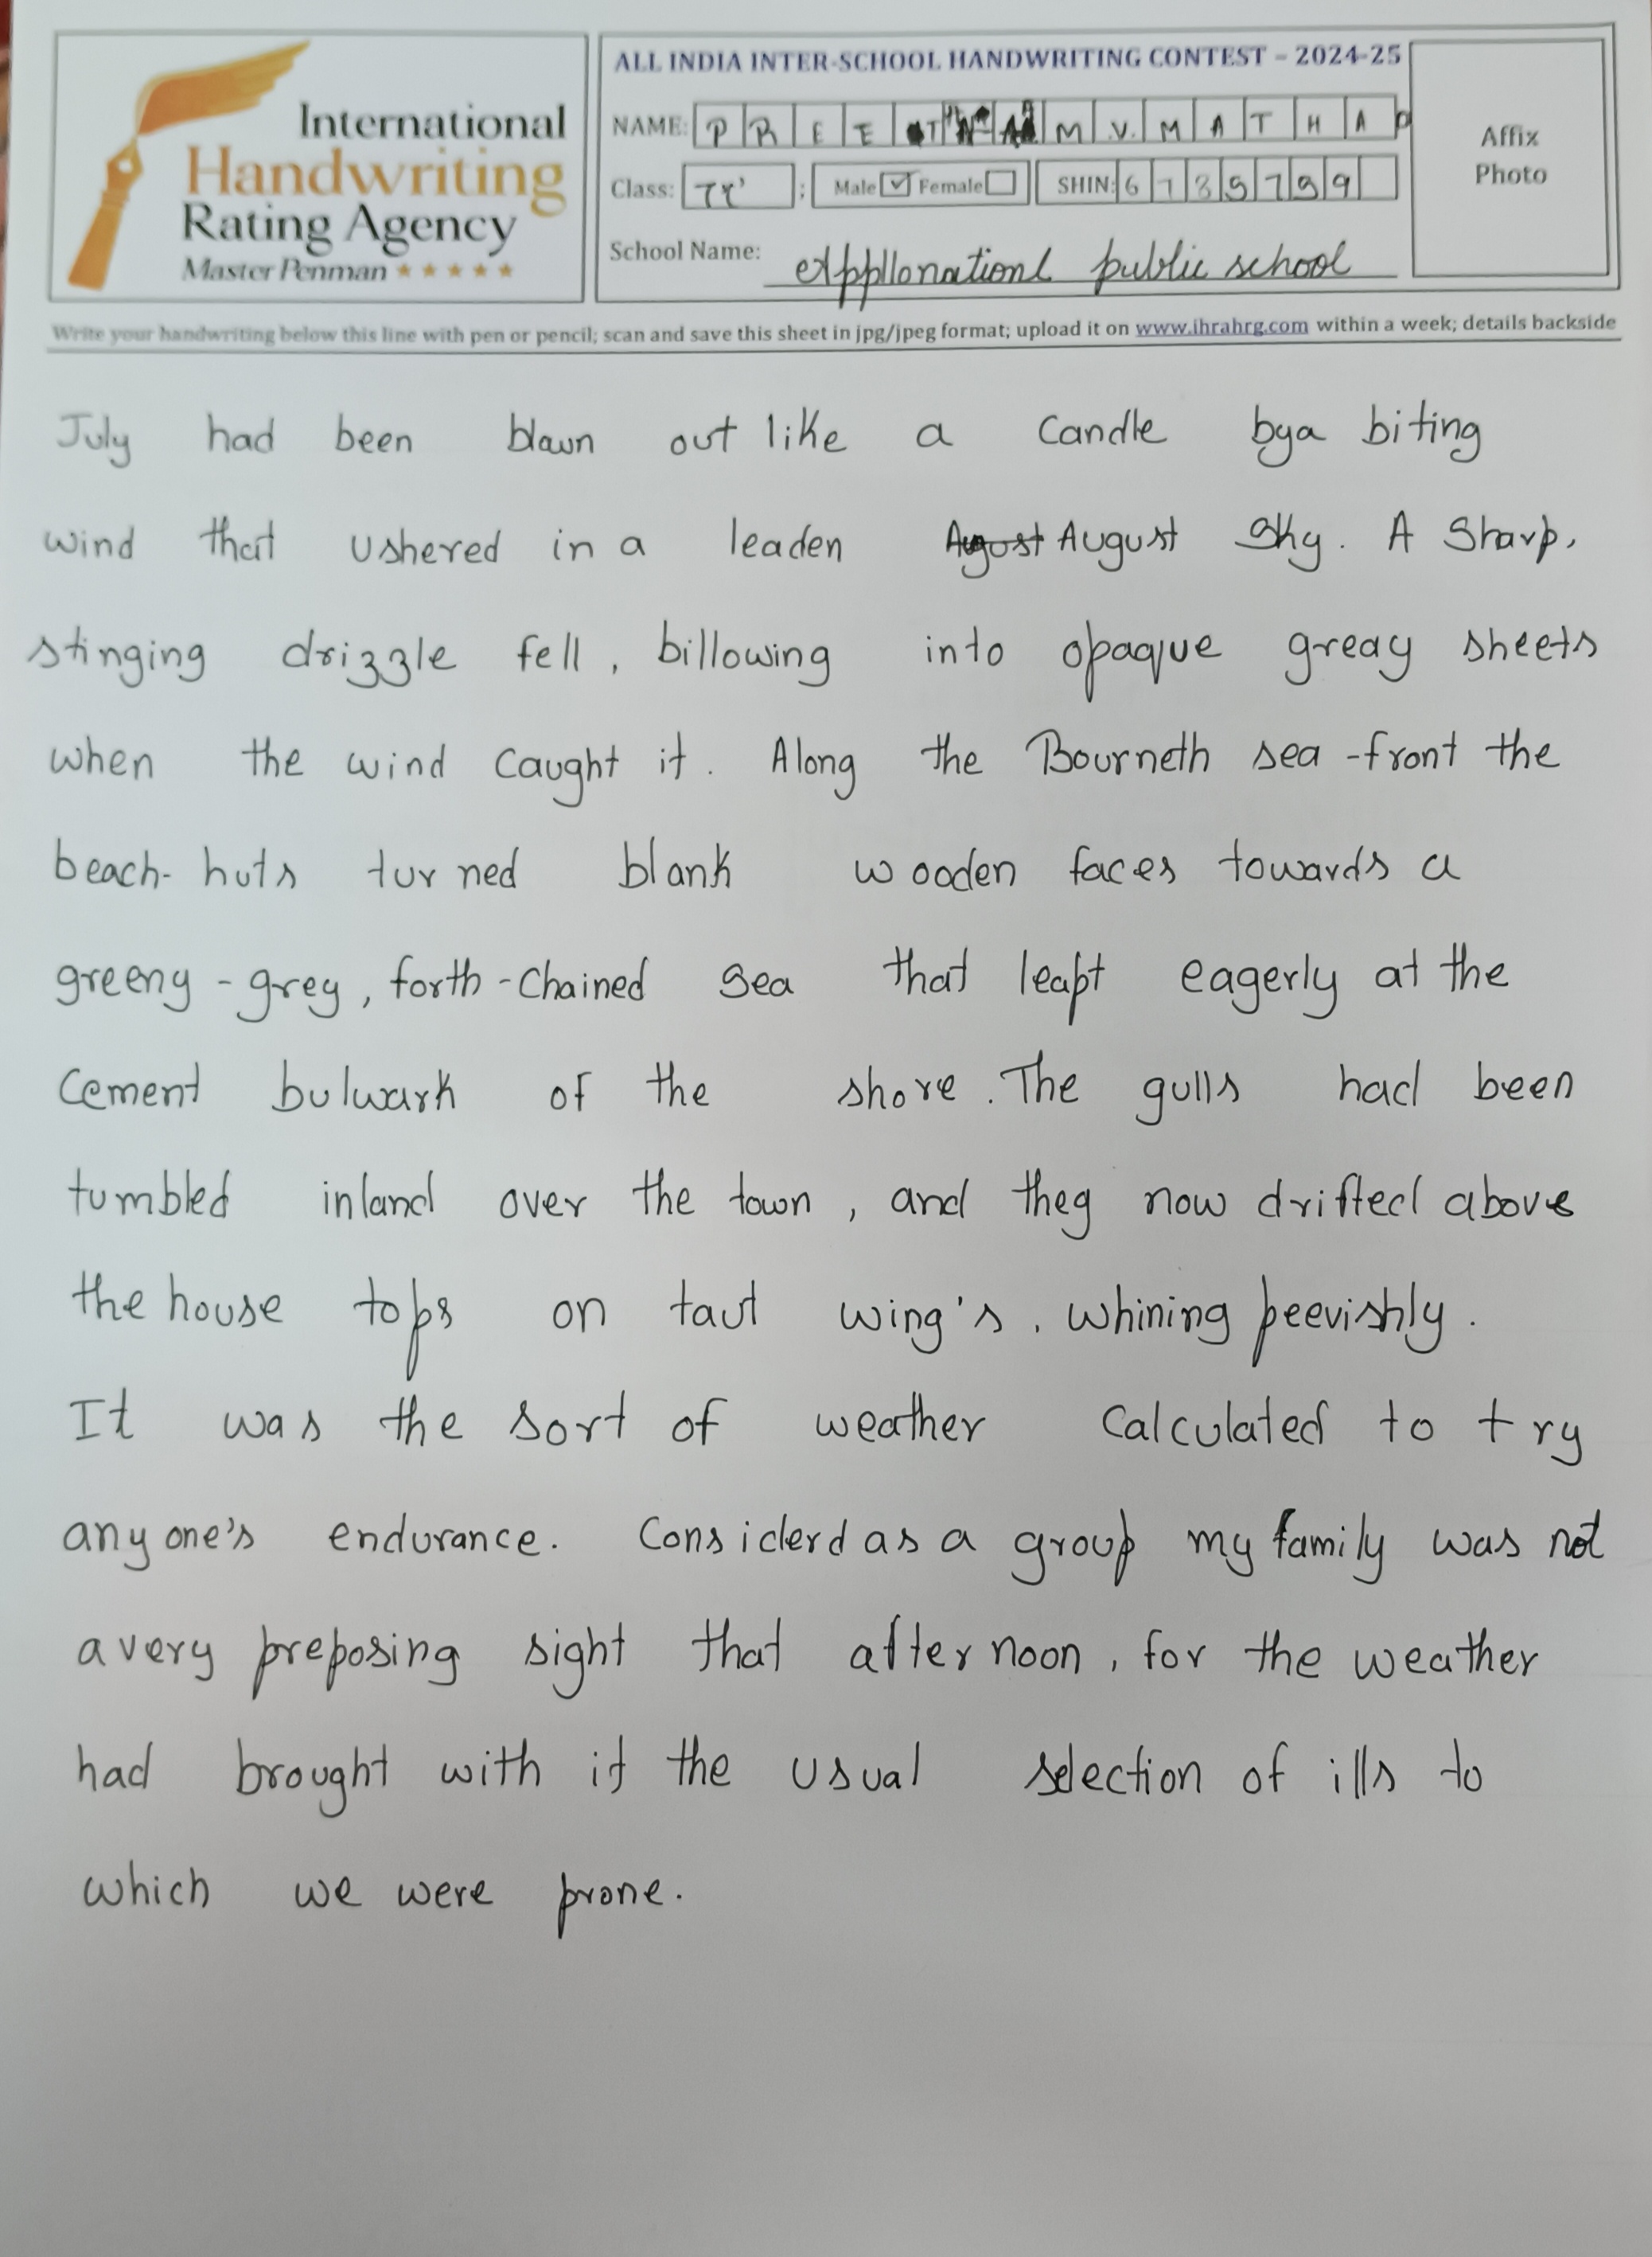 International
Handwriting
Rating Agency
Master Penman
ALL INDIA INTER-SCHOOL HANDWRITING CONTEST – 2024-25
NAME: P R E E T H A M V. M A T H A D
Class: ; Male Female SHIN:
School Name: public school
Affix
Photo
Write your handwriting below this line with pen or pencil; scan and save this sheet in jpg/jpeg format; upload it on www.ihrahrg.com within a week; details backside
July had been blawn out like a candle bya biting
wind that ushered in a leaden August August sky. A Sharp,
stinging drizzle fell, billowing into opaque greay sheets
when the wind caught it. Along the Bourneth sea-front the
beach-huts turned blank wooden faces towards a
greeny-grey, forth-chained sea that leapt eagerly at the
cement bulwark of the shore. The gulls had been
tumbled inland over the town, and they now drifted above
the house tops on taut wing's, whining peevishly.
It was the sort of weather calculated to try
anyone's endurance. Considerd as a group my family was not
a very preposing sight that afternoon, for the weather
had brought with it the usual selection of ills to
which we were prone.